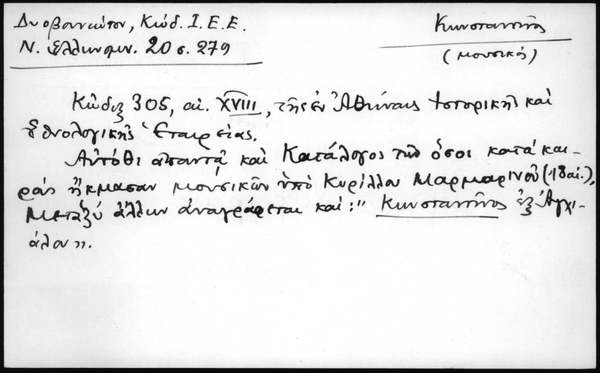 Δυοβουνιώτου, Κώδ. Ι.Ε.Ε.
Ν. Ελληνομν. 20 σ. 279
Κωνσταντῖνος
(μουσικός)
Κῶδιξ 305, αἰ. XVIII, τῆς ἐν Ἀθήναις Ἱστορικῆς καὶ
Ἐθνολογικῆς Ἑταιρείας.
Αὐτόθι ἀπαντᾷ καὶ Κατάλογος τῶν ὅσοι κατὰ και-
ρὰς ἤκμασαν μουσικῶν ὑπὸ Κυρίλλου Μαρμαρινοῦ (18 αἰ.),
Μεταξὺ ἄλλων ἀναγράφεται καὶ: "Κωνσταντῖνος ἐξ Ἀγχι-
άλου".